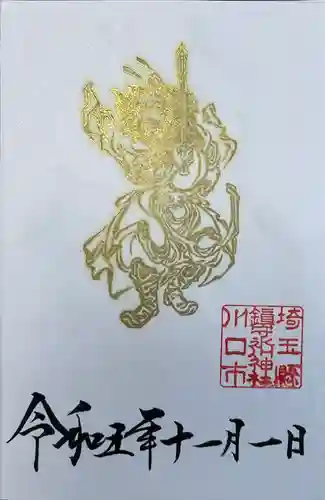 埼玉縣
鎮守氷川神社
川口市
令和五年十一月一日